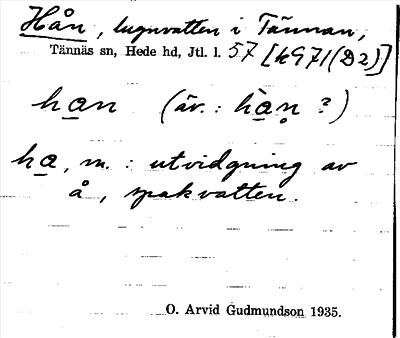 Hån, lugnvatten i Tännan,
Tännäs sn, Hede hd, Jtl. l. 57 [k971(D2)]
han (äv.: hàn̥ ?)
ha, m.: utvidgning av
å, spakvatten.
O. Arvid Gudmundson 1935.